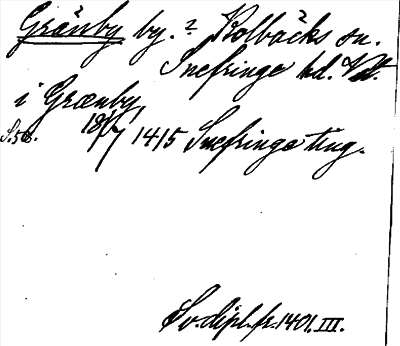 Gränby by. ? Kolbäcks sn.
Snefringe hd. Vstm.
i Grænby
S. 58. 18/7 1415 Snefringe ting.
Sv. dipl. fr. 1401. III.